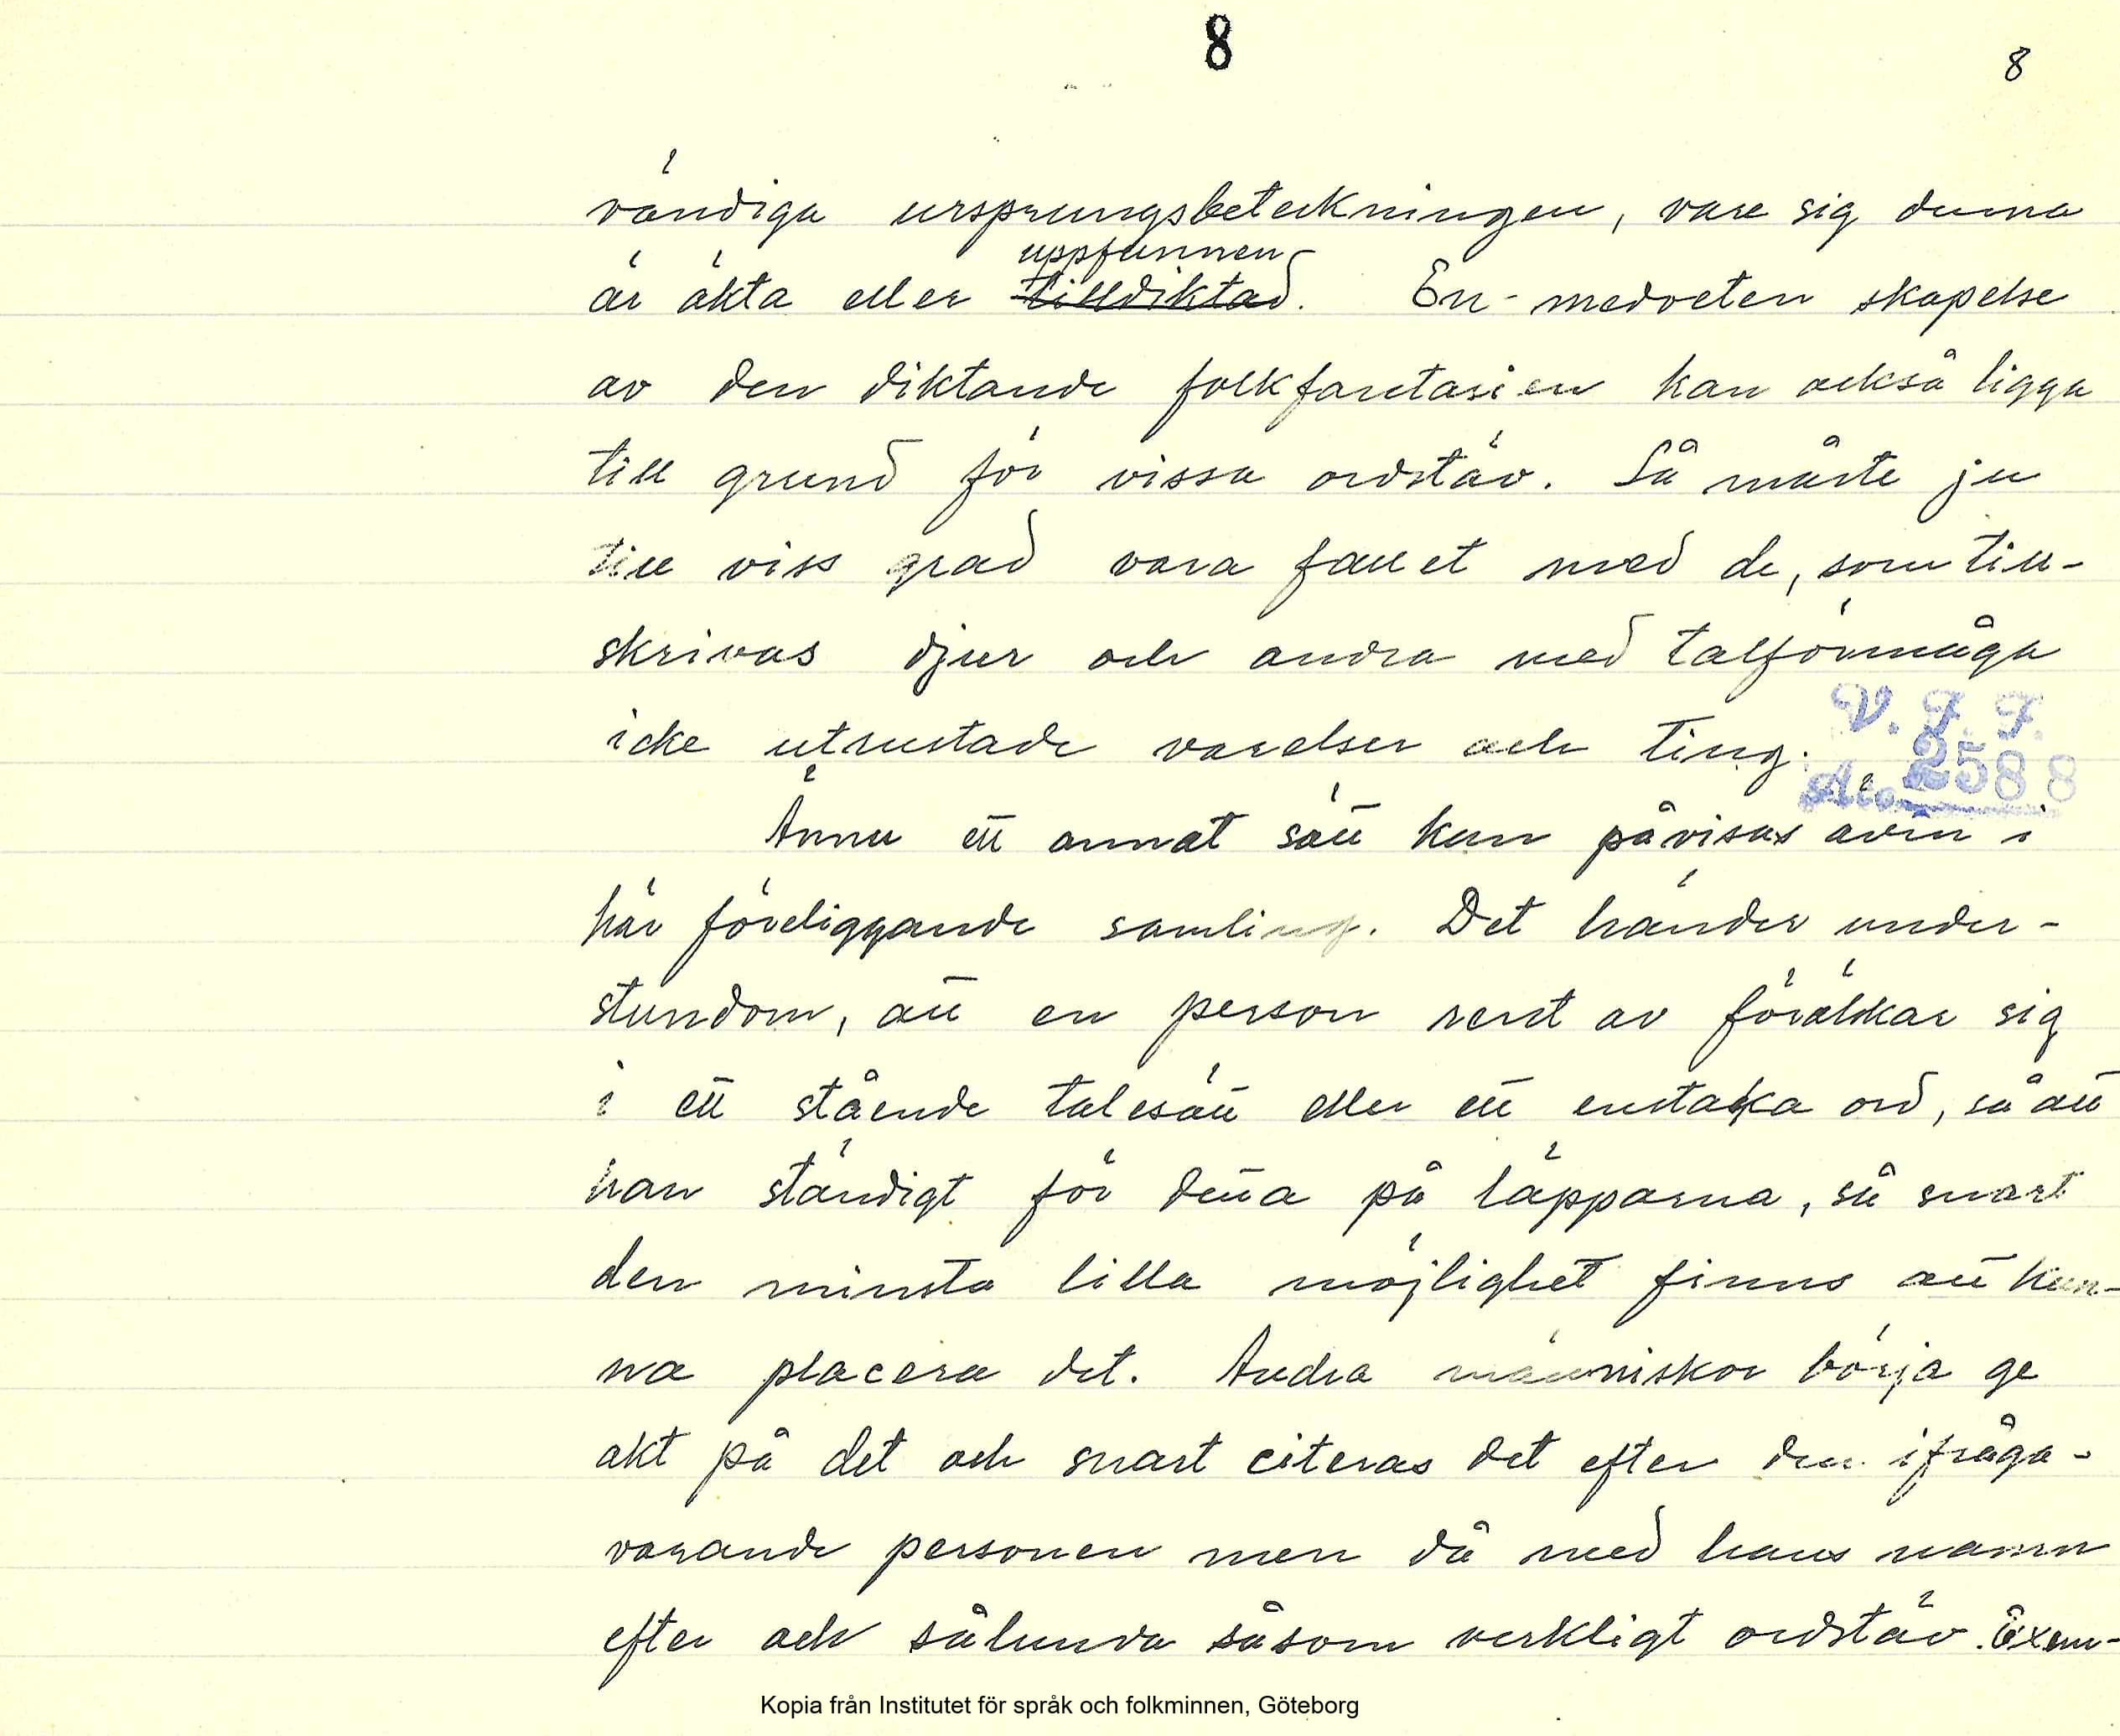 8
8
vändiga ursprungsbeteckningen, vare sig denna
uppfunnen
är äkta eller tilldiktad. En medveten skapelse
av den diktande folkfantasien kan också ligga
till grund för vissa ordstäv. Så måste ju
till viss grad vara fallet med de, som till-
skrivas djur och andra med talförmåga
icke utrustade varelser och ting.
V. F. F.
Acc. 2588
Ännu ett annat sätt kan påvisas även i
här föreliggande samling. Det händer under-
stundom, att en person rent av förälskar sig
i ett stående talesätt eller ett enstaka ord, så att
han ständigt för detta på läpparna, så snart
den minsta lilla möjlighet finns att kun-
na placera det. Andra människor börja ge
akt på det och snart citeras det efter den ifråga-
varande personen men då med hans namn
efter och sålunda såsom verkligt ordstäv. Exem-
Kopia från Institutet för språk och folkminnen, Göteborg